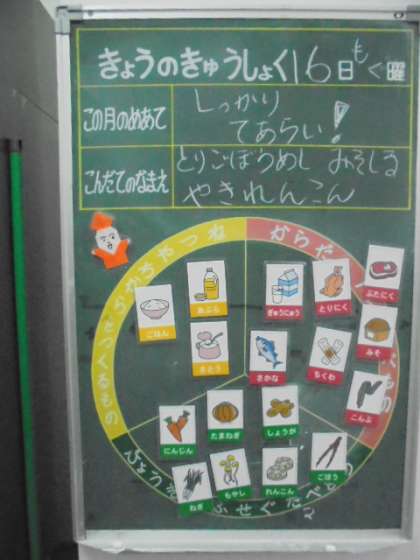 きょうのきゅうしょく 16日 もく曜
この月のめあて
しっかり
てあらい!
こんだてのなまえ
とりごぼうめし みそしる
やきれんこん
ちからやねつ
からだ
ごはん
あぶら
さとう
ぎゅうにゅう
とりにく
ぶたにく
さかな
ちくわ
みそ
こんぶ
にんじん
たまねぎ
しょうが
ねぎ
もやし
れんこん
ごぼう
ふせぐ